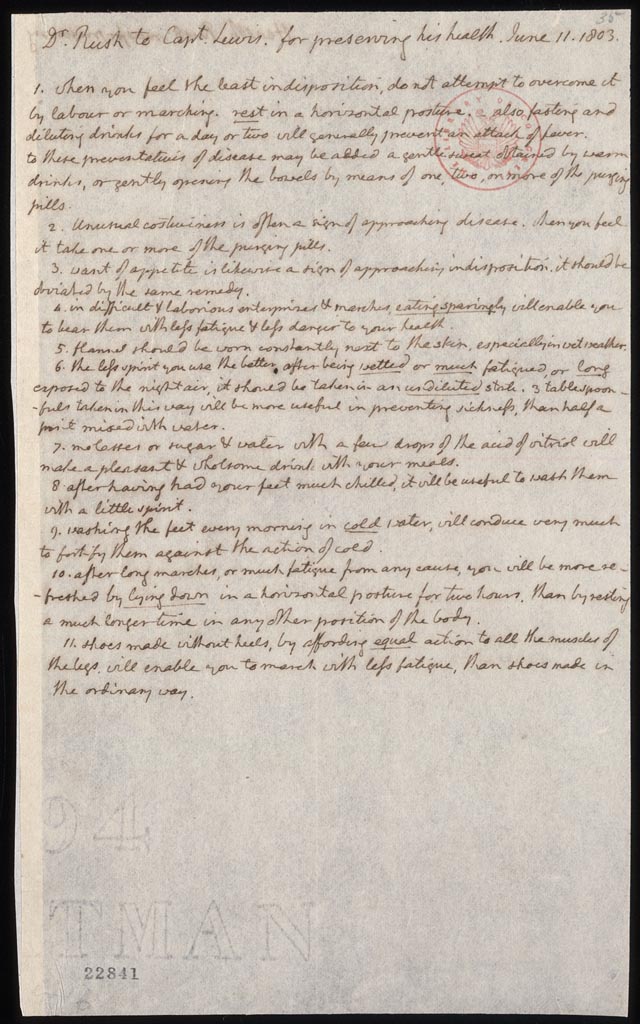 35
Dr. Rush to Capt. Lewis. for preserving his health. June 11. 1803.
1. when you feel the least indisposition, do not attempt to overcome it
by labour or marching. rest in a horizontal posture. also fasting and
diluting drinks for a day or two will generally prevent an attack of fever.
to these preventatives of disease may be added a gentle sweat obtained by warm
drinks, or gently opening the bowels by means of one, two, or more of the purging
pills.
2. Unusual costiveness is often a sign of approaching disease. when you feel
it take one or more of the purging pills.
3. want of appetite is likewise a sign of approaching indisposition. it should be
obviated by the same remedy.
4. in difficult & laborious enterprizes & marches, eating sparingly will enable you
to bear them with less fatigue & less danger to your health.
5. flannel should be worn constantly next to the skin, especially in wet weather.
6. the less spirit you use the better. after being wetted or much fatigued, or long
exposed to the night air, it should be taken in an undiluted state. 3 tablespoon-
-fuls taken in this way will be more useful in preventing sickness, than half a
pint mixed with water.
7. molasses or sugar & water with a few drops of the acid of vitriol will
make a pleasant & wholsome drink with your meals.
8 after having had your feet much chilled, it will be useful to wash them
with a little spirit.
9. washing the feet every morning in cold water, will conduce very much
to fortify them against the action of cold.
10. after long marches, or much fatigue from any cause, you will be more re-
-freshed by lying down in a horizontal posture for two hours, than by resting
a much longer time in any other position of the body.
11. shoes made without heels, by affording equal action to all the muscles of
the legs, will enable you to march with less fatigue, than shoes made in
the ordinary way.
94
TMAN
22841